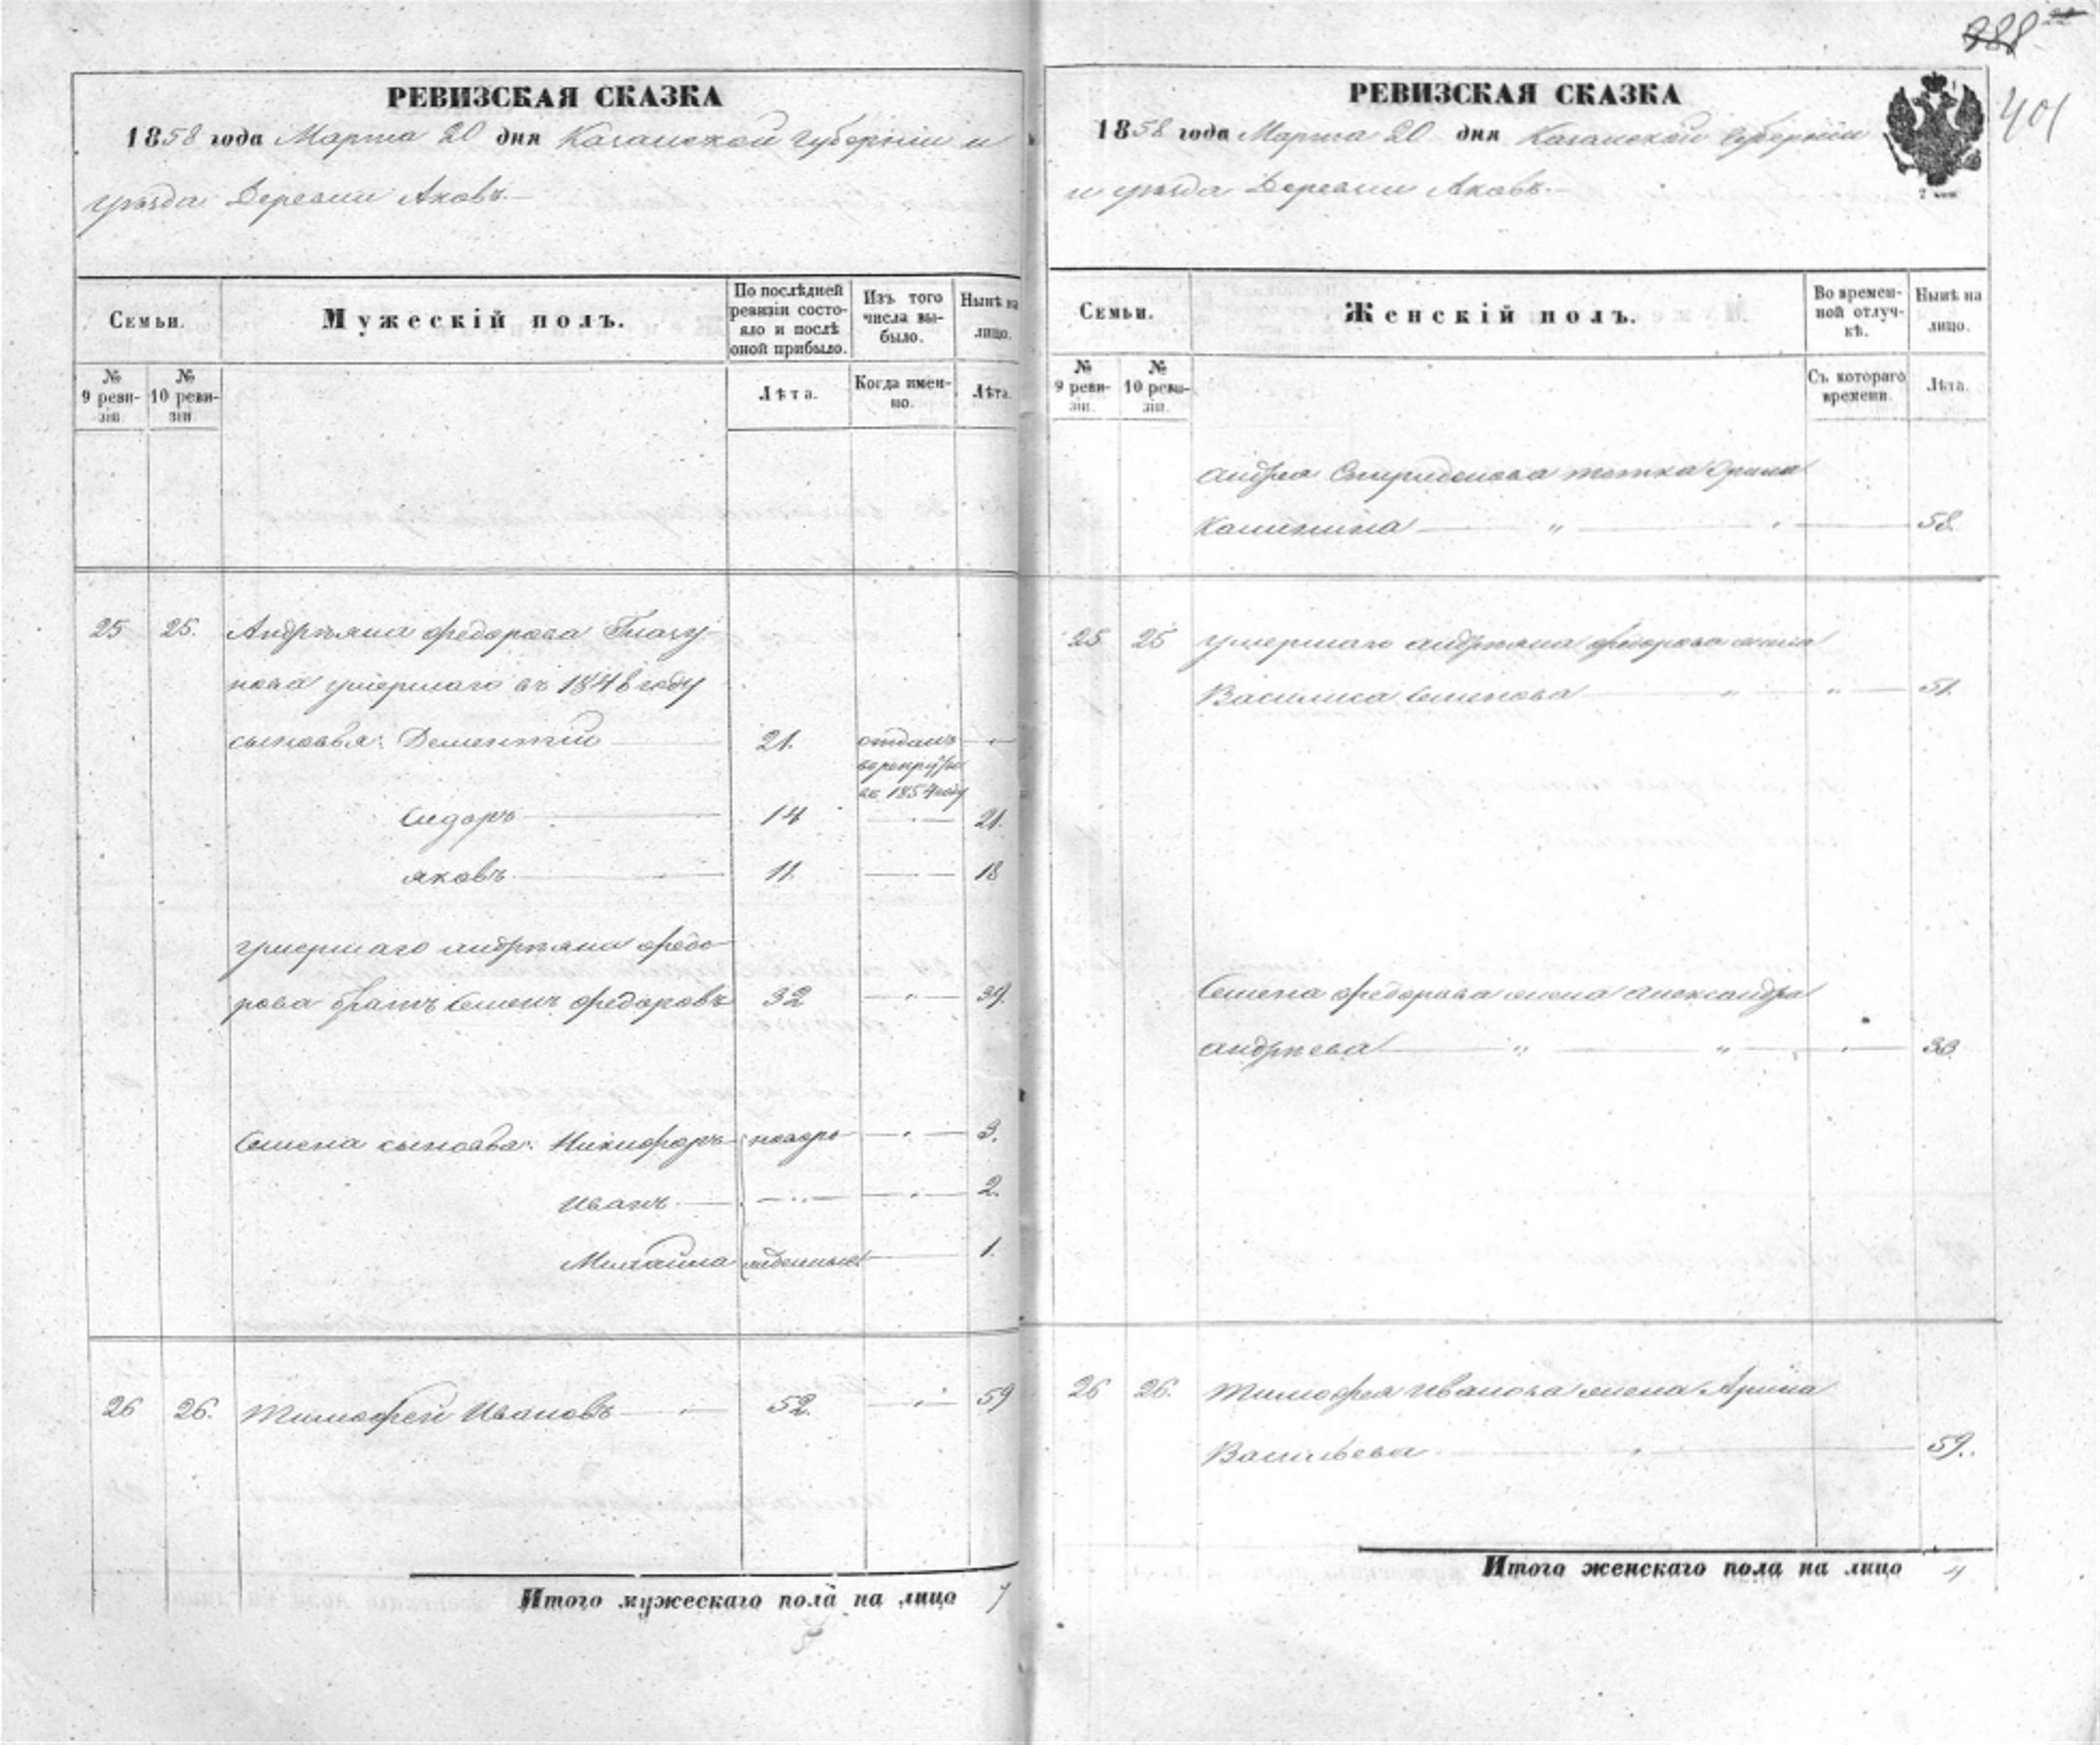 401
РЕВИЗСКАЯ СКАЗКА
1858 года Марта 20 дня Казанской Губернии и
уѣзда Деревни Аковъ.
Семьи.
Мужескій полъ.
По послѣдней ревизіи состояло и послѣ оной прибыло.
Изъ того числа выбыло.
Нынѣ на лицо.
№ 9 ревизіи
№ 10 ревизіи
Лѣта.
Когда именно.
Лѣта.
25 25. Андрѣяна Федорова
умершаго въ 1848 году
сыновья: Дементій 21. отданъ
въ рекруты
въ 1854 году
Сидоръ 14 21.
Яковъ 11. 18
умершаго Андрѣяна Федо
рова братъ Семенъ Федоровъ 32 39.
Семена сыновья: Никифоръ новоро 3.
Иванъ 2.
Михайла жденные 1.
26 26. Тимофей Ивановъ 52. 59
Итого мужескаго пола на лицо 7
РЕВИЗСКАЯ СКАЗКА
1858 года Марта 20 дня Казанской Губернии
и уѣзда Деревни Аковъ.
Семьи.
Женскій полъ.
Во временной отлучкѣ.
Нынѣ на лицо.
№ 9 ревизіи.
№ 10 ревизіи.
Съ котораго времени.
Лѣта.
Андрея Спиридонова тетка Орина
Калинина 58.
25 25 умершаго Андрѣяна Федорова жена
Василиса Семенова 51.
Семена Федорова жена Александра
Андреева 30.
26 26. Тимофея Иванова жена Арина
Васильева 59.
Итого женскаго пола на лицо 4